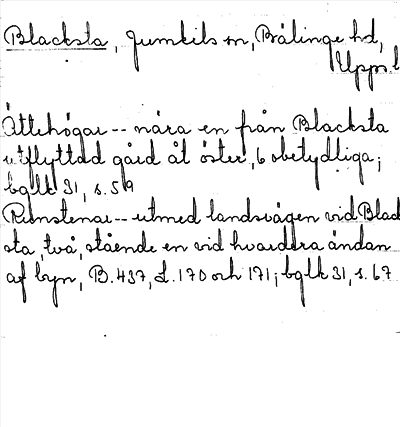 Blacksta, Jumkils sn, Bälinge hd,
Upps. l
Ättehögar -- nära en från Blacksta
utflyttad gård åt öster, 6 obetydliga;
bglk 31, s. 59
Runstenar -- utmed landsvägen vid Black
sta, två, stående en vid hvardera ändan
af byn, B. 437, L. 170 och 171; bglk 31, s. 67